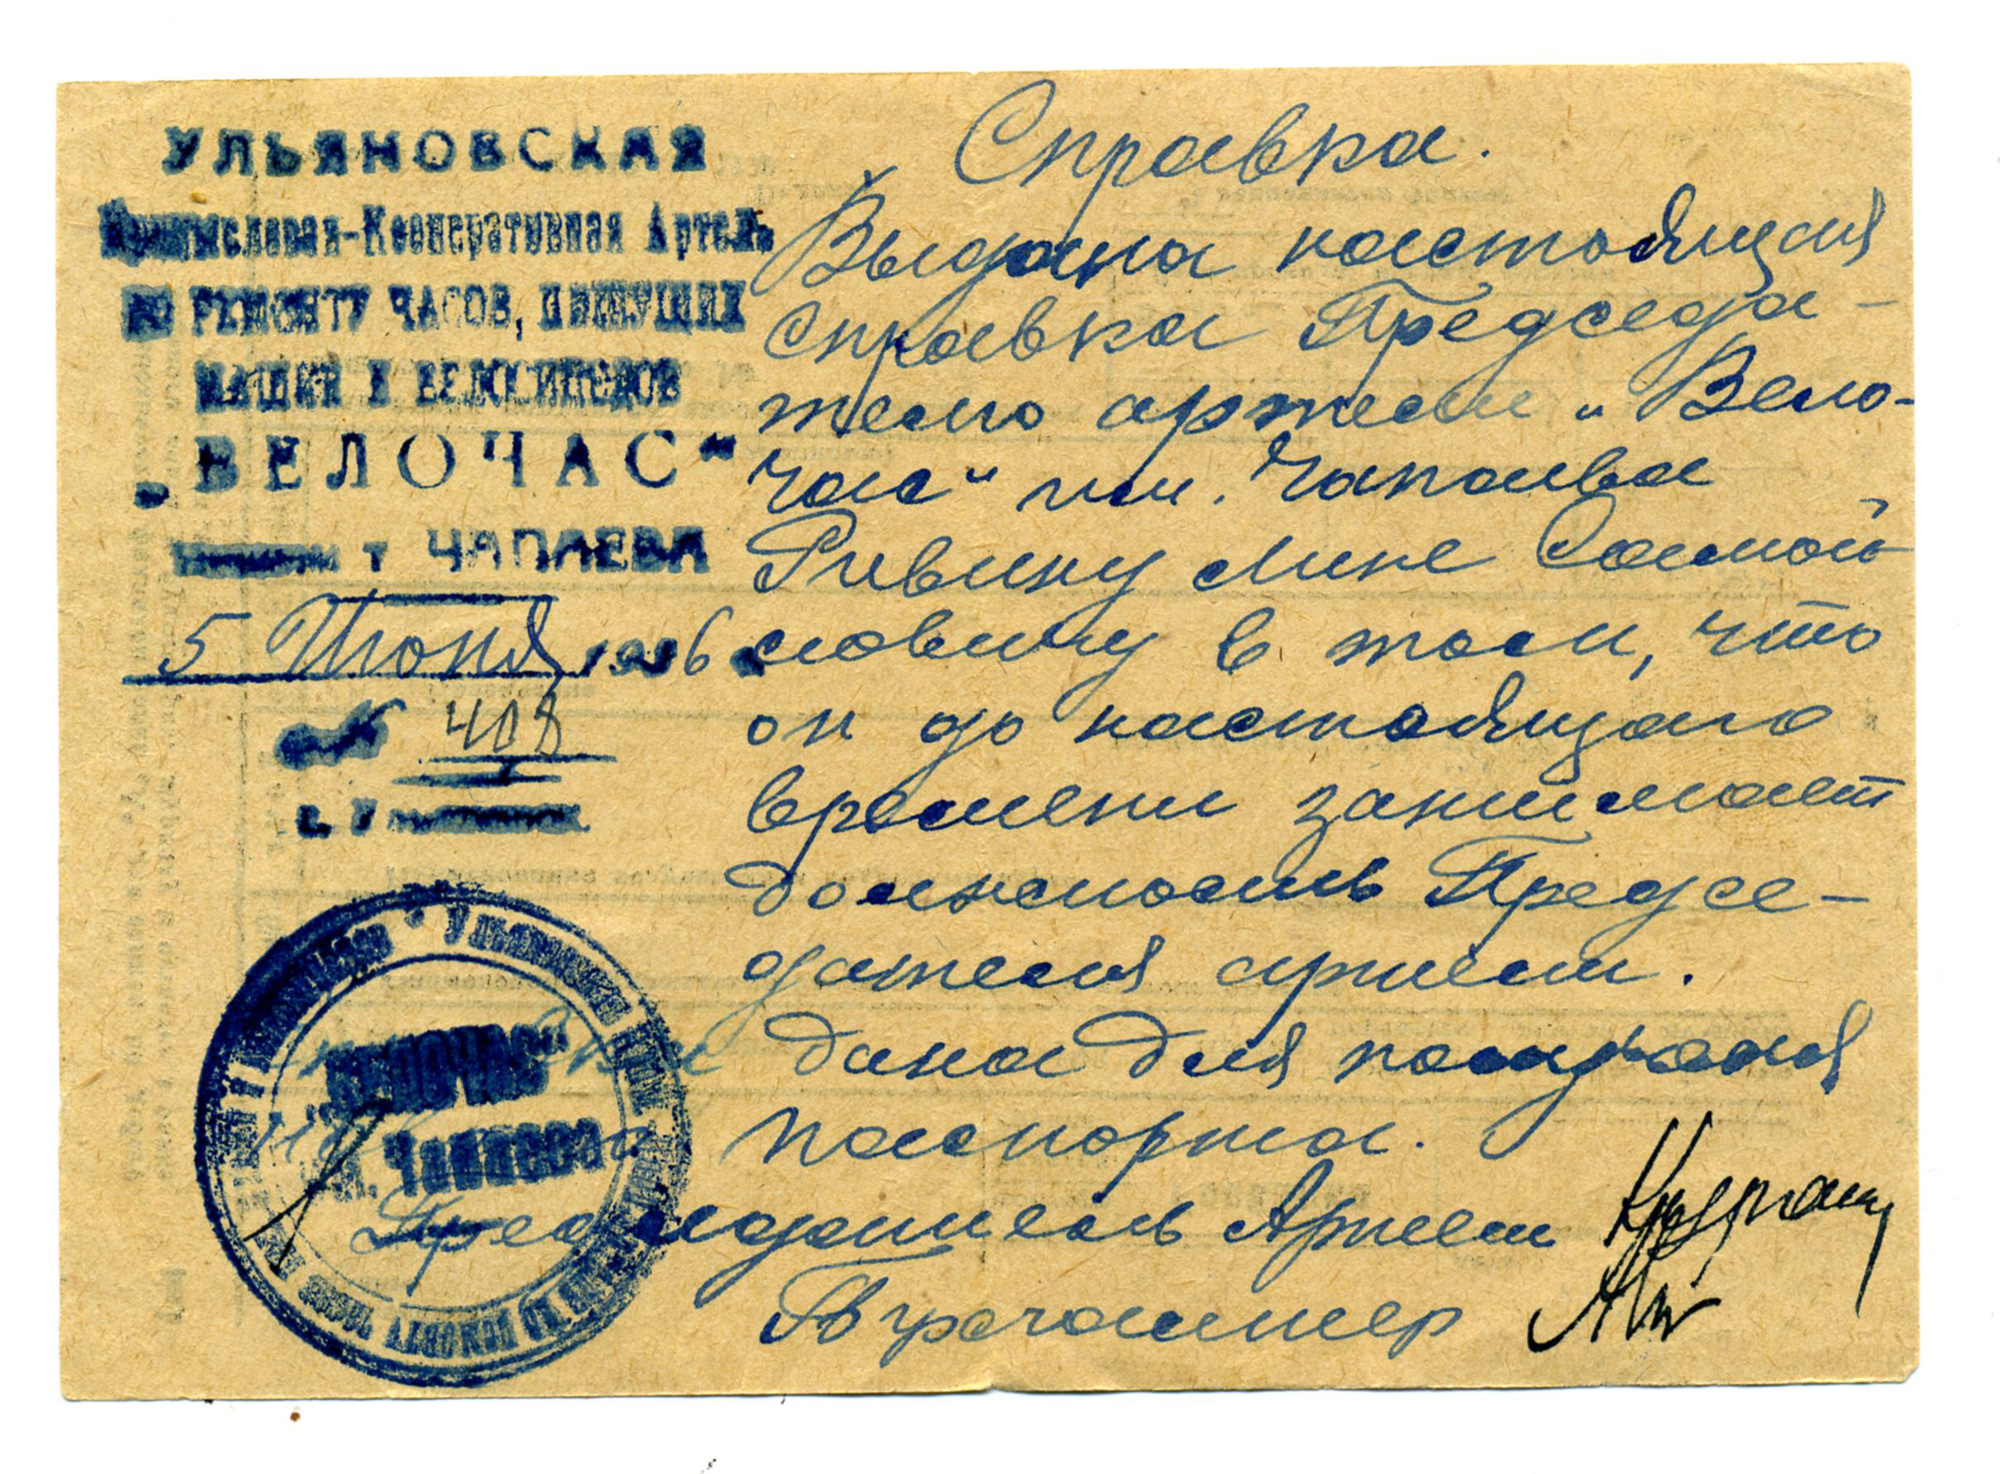 УЛЬЯНОВСКАЯ
Промысловая-Кооперативная Артель
по РЕМОНТУ ЧАСОВ, ПИШУЩИХ
МАШИН И ВЕЛОСИПЕДОВ
„ВЕЛОЧАС“
т ЧАПАЕВА
5 Июня 1946
№ 408
г. У
Справка.
Выдана настоящая
справка Председа-
телю артели „Вело-
час“ им. Чапаева
Ривину Мине Самой-
ловичу в том, что
он до настоящего
времени занимает
должность Предсе-
дателя артели.
дана для получения
паспорта.
Председатель Артели
Бухгалтер
Ульяновская
„ВЕЛОЧАС“
им. Чапаева